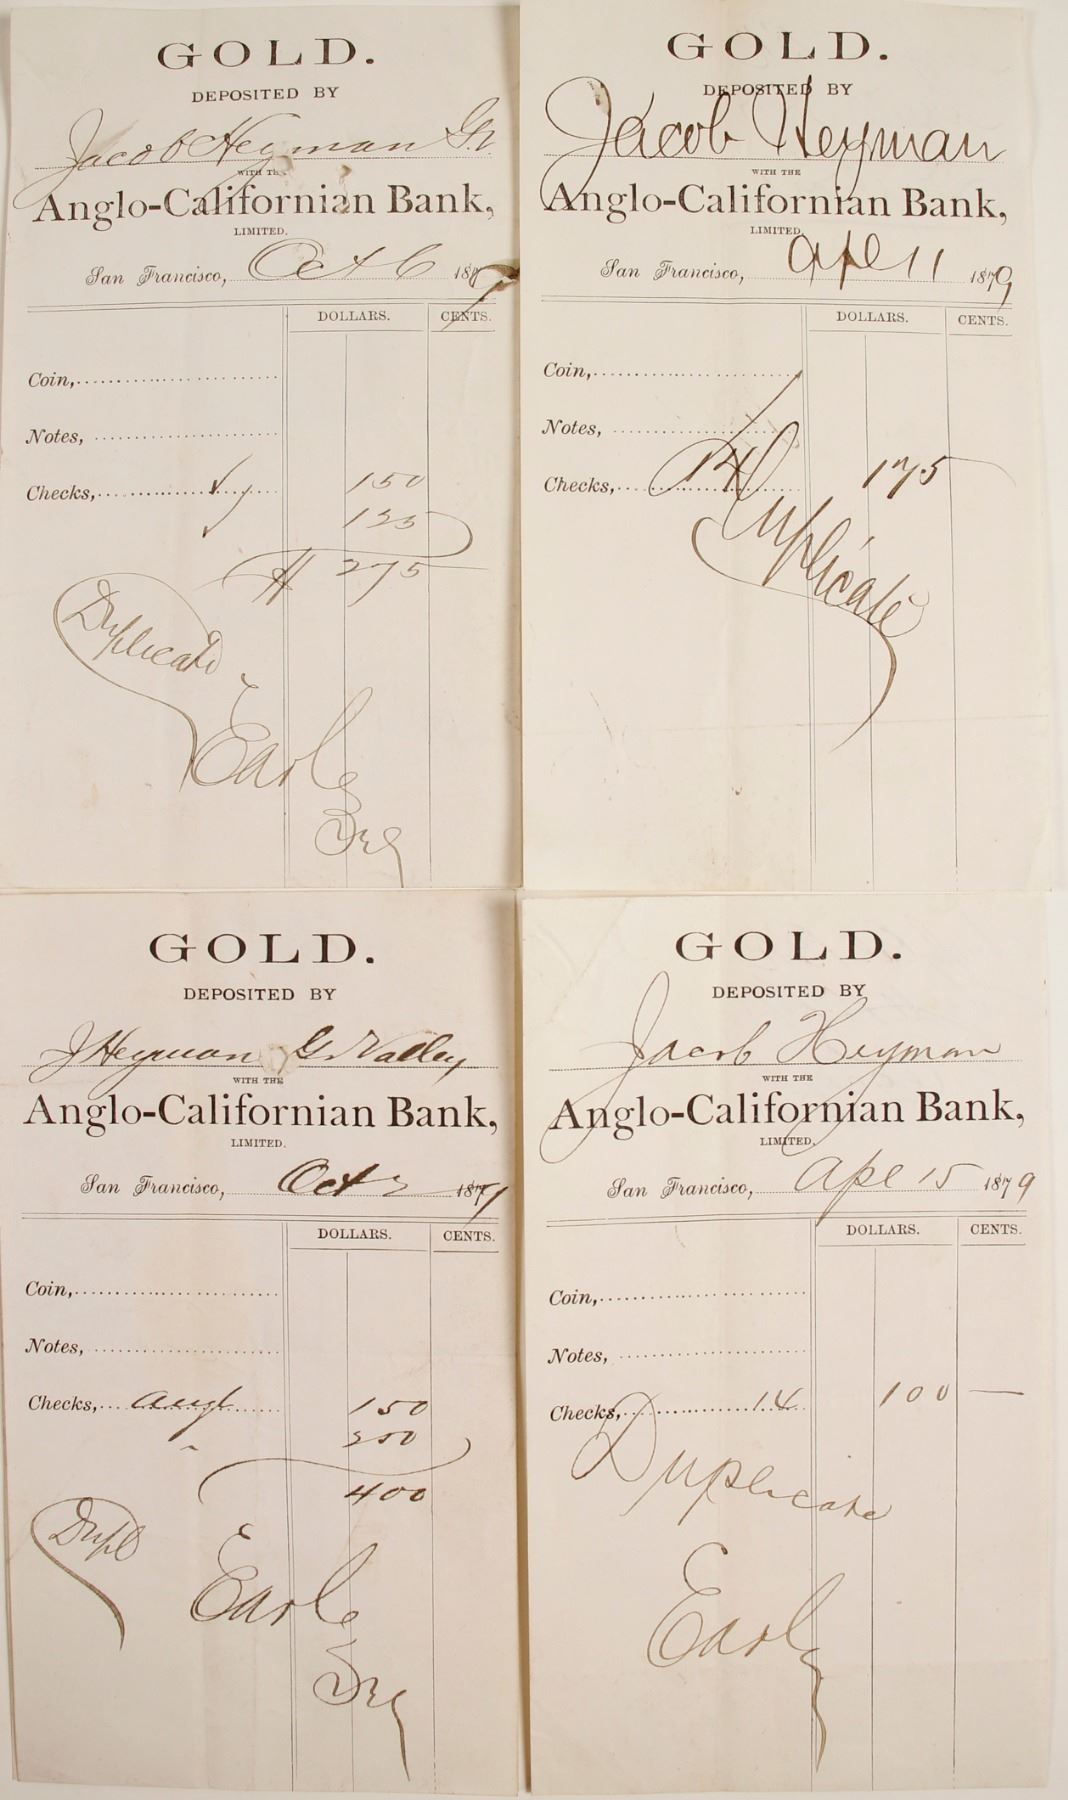 GOLD.
DEPOSITED BY
Jacob Heyman Gr.
WITH TH
Anglo-Californian Bank,
LIMITED.
San Francisco, Oct 6 187
DOLLARS. CENTS.
Coin,
Notes,
Checks, 150
125
275
Duplicate
Earle
GOLD.
DEPOSITED BY
Jacob Heyman
WITH THE
Anglo-Californian Bank,
LIMITED.
San Francisco, Apl 11 1879
DOLLARS. CENTS.
Coin,
Notes,
Checks, 14 175
Duplicate
GOLD.
DEPOSITED BY
J Heyman Gr Valley
WITH THE
Anglo-Californian Bank,
LIMITED.
San Francisco, Oct 2 187
DOLLARS. CENTS.
Coin,
Notes,
Checks, 150
250
400
Dupl
Earle
GOLD.
DEPOSITED BY
Jacob Heyman
WITH THE
Anglo-Californian Bank,
LIMITED.
San Francisco, Apl 15 1879
DOLLARS. CENTS.
Coin,
Notes,
Checks, 14 100 —
Duplicate
Earle